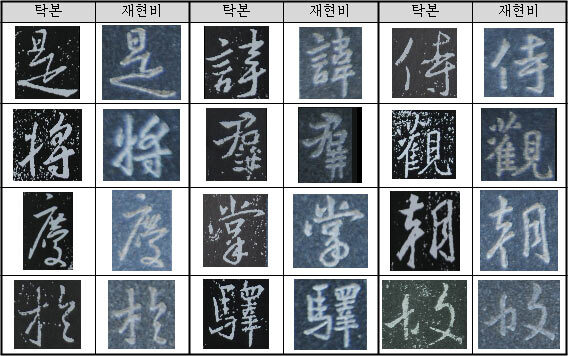 탁본 재현비 탁본 재현비 탁본 재현비
是 是 諱 諱 侍 侍
將 將 羣 羣 觀 觀
慶 慶 掌 常 朝 朝
於 於 驛 驛 故 故